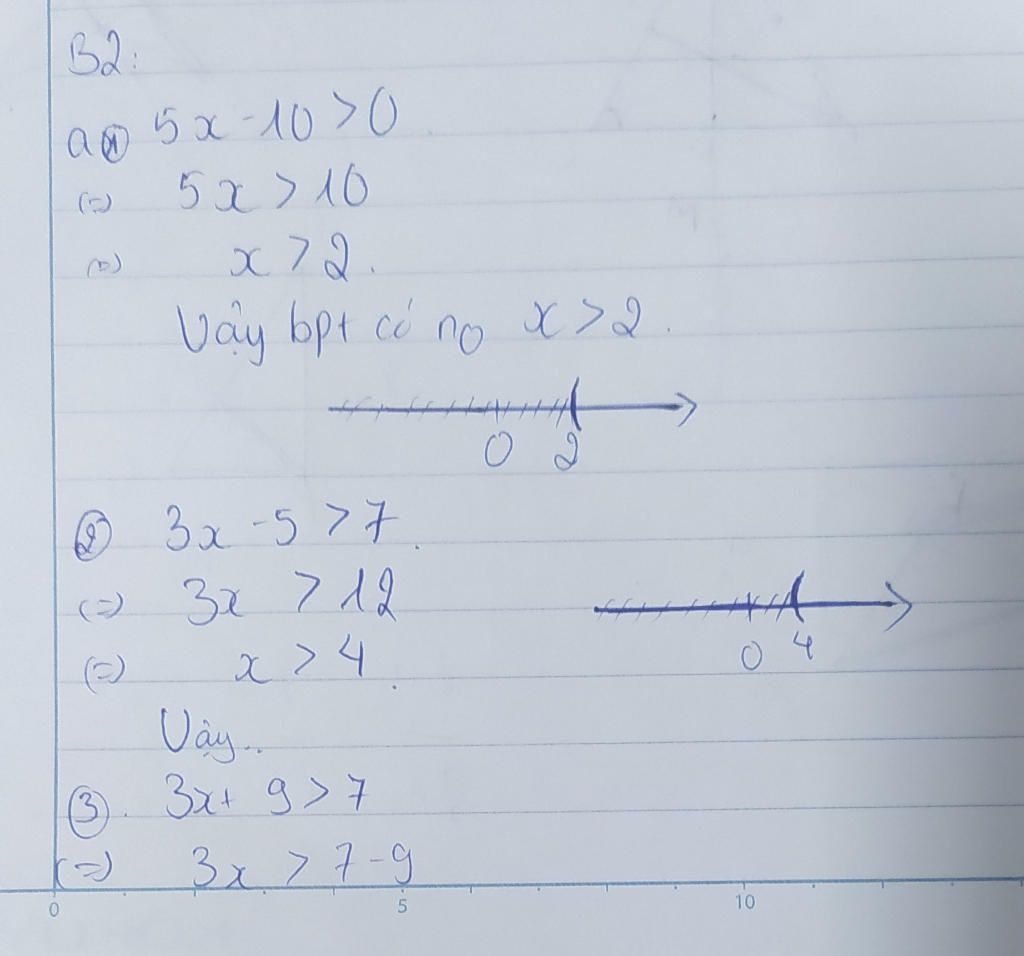 B2:
a) ① 5x - 10 > 0
(=) 5x > 10
(=) x > 2.
Vậy bpt có no x > 2.
0 2
② 3x - 5 > 7.
(=) 3x > 12
(=) x > 4.
0 4
Vậy..
③. 3x + 9 > 7
(=) 3x > 7 - 9
0 5 10